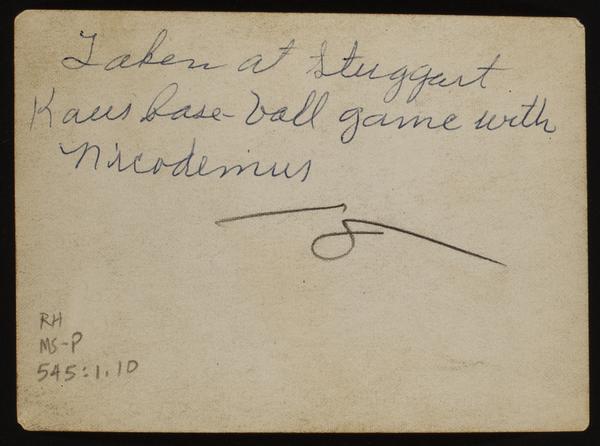 Taken at Stuggart
Kaus base-ball game with
Nicodemus
RH
MS-P
545:1.10